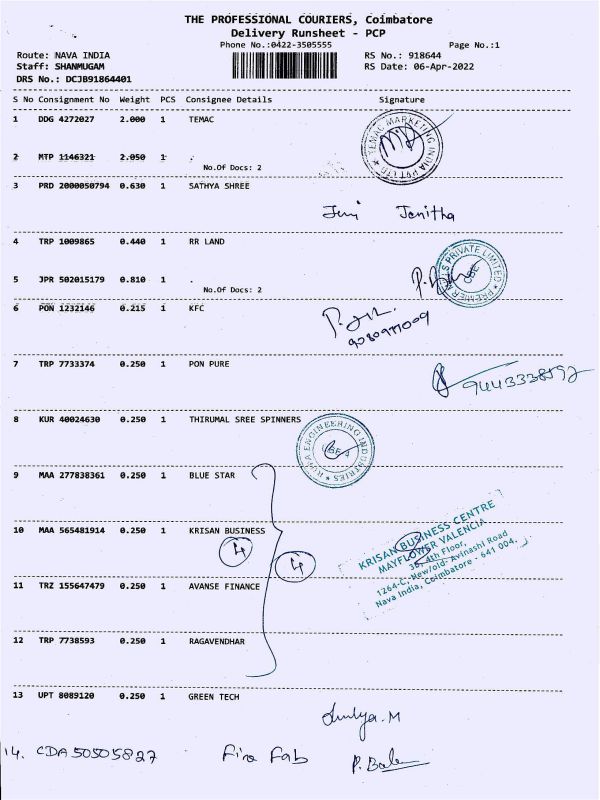 THE PROFESSIONAL COURIERS, Coimbatore
Delivery Runsheet - PCP
Phone No.:0422-3505555 Page No.:1
Route: NAVA INDIA RS No.: 918644
Staff: SHANMUGAM RS Date: 06-Apr-2022
DRS No.: DCJB91864401
S No Consignment No Weight PCS Consignee Details Signature
1 DDG 4272027 2.000 1 TEMAC
TEMAC MARKETING INDIA PVT LTD
2 MTP 1146321 2.050 1 .
No.Of Docs: 2
3 PRD 2000050794 0.630 1 SATHYA SHREE
Jeni Jenitha
4 TRP 1009865 0.440 1 RR LAND
PREMIER MILLS PRIVATE LIMITED
CBE
5 JPR 502015179 0.810 1 .
No.Of Docs: 2
6 PON 1232146 0.215 1 KFC
7 TRP 7733374 0.250 1 PON PURE
8 KUR 40024630 0.250 1 THIRUMAL SREE SPINNERS
ENGINEERING INDUSTRIES
9 MAA 277838361 0.250 1 BLUE STAR
10 MAA 565481914 0.250 1 KRISAN BUSINESS
4 4
KRISAN BUSINESS CENTRE
MAYFLOWER VALENCIA
4th Floor,
1264-C, New/old- Avinashi Road
Nava India, Coimbatore - 641 004.
11 TRZ 155647479 0.250 1 AVANSE FINANCE
12 TRP 7738593 0.250 1 RAGAVENDHAR
13 UPT 8089120 0.250 1 GREEN TECH
14. CDA 50505827 Fira Fab P. Bala